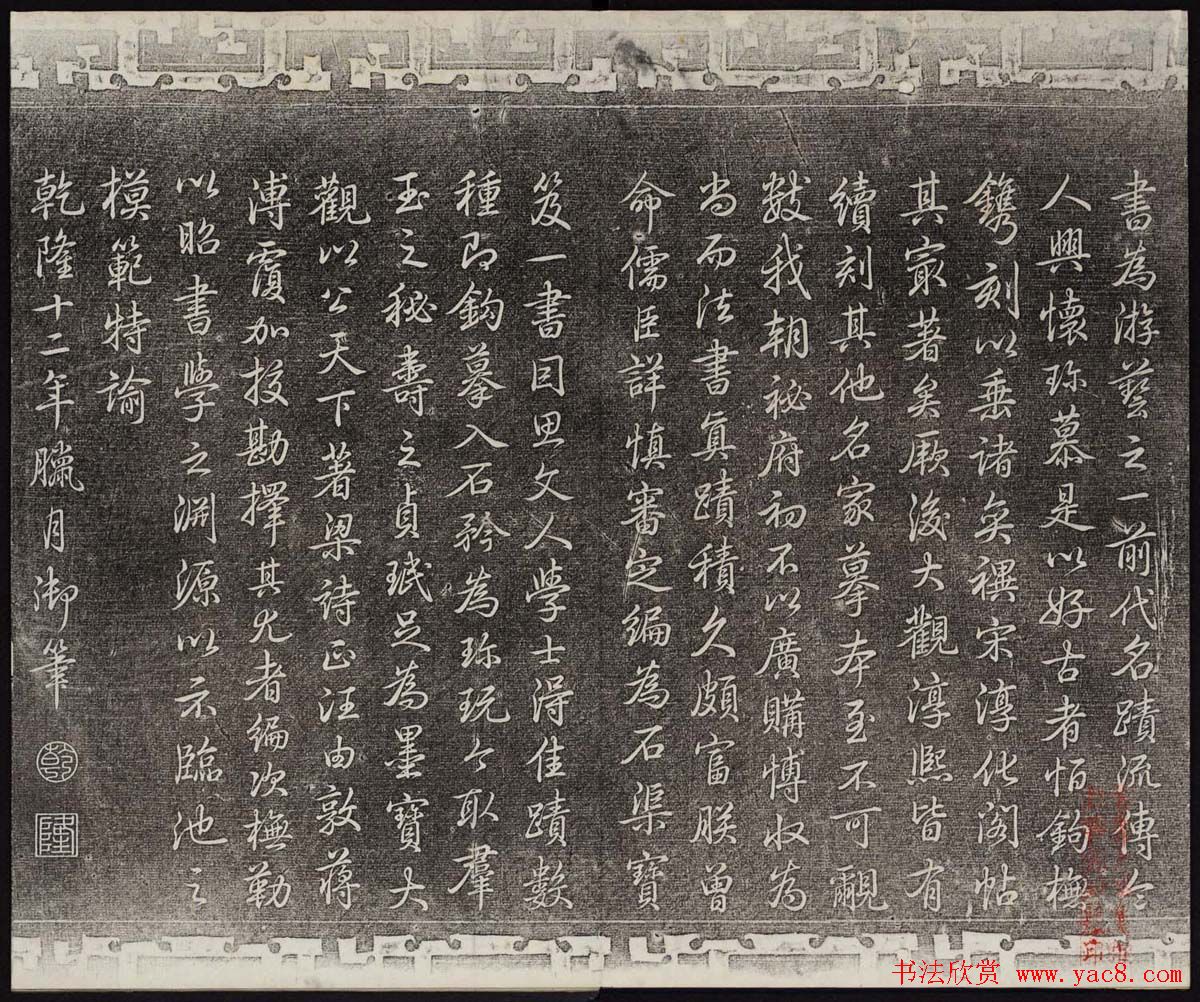 書為游藝之一前代名蹟流傳令
人興懷珎慕是以好古者恆鉤橅
鐫刻以垂諸奕禩宋淳化閣帖
其最著矣厥後大觀淳熙皆有
續刻其他名家摹本至不可覼
數我朝祕府初不以廣購博收為
尚而法書真蹟積久頗富朕曾
命儒臣詳慎審定編為石渠寶
笈一書因思文人學士得佳蹟數
種即鉤摹入石矜為珎玩今取羣
玉之秘壽之貞珉足為墨寶大
觀以公天下著梁詩正汪由敦蔣
溥覆加挍勘擇其尤者編次橅勒
以昭書學之淵源以示臨池之
模範特諭
乾隆十二年臘月御筆
乾
隆
书法欣赏 www.yac8.com